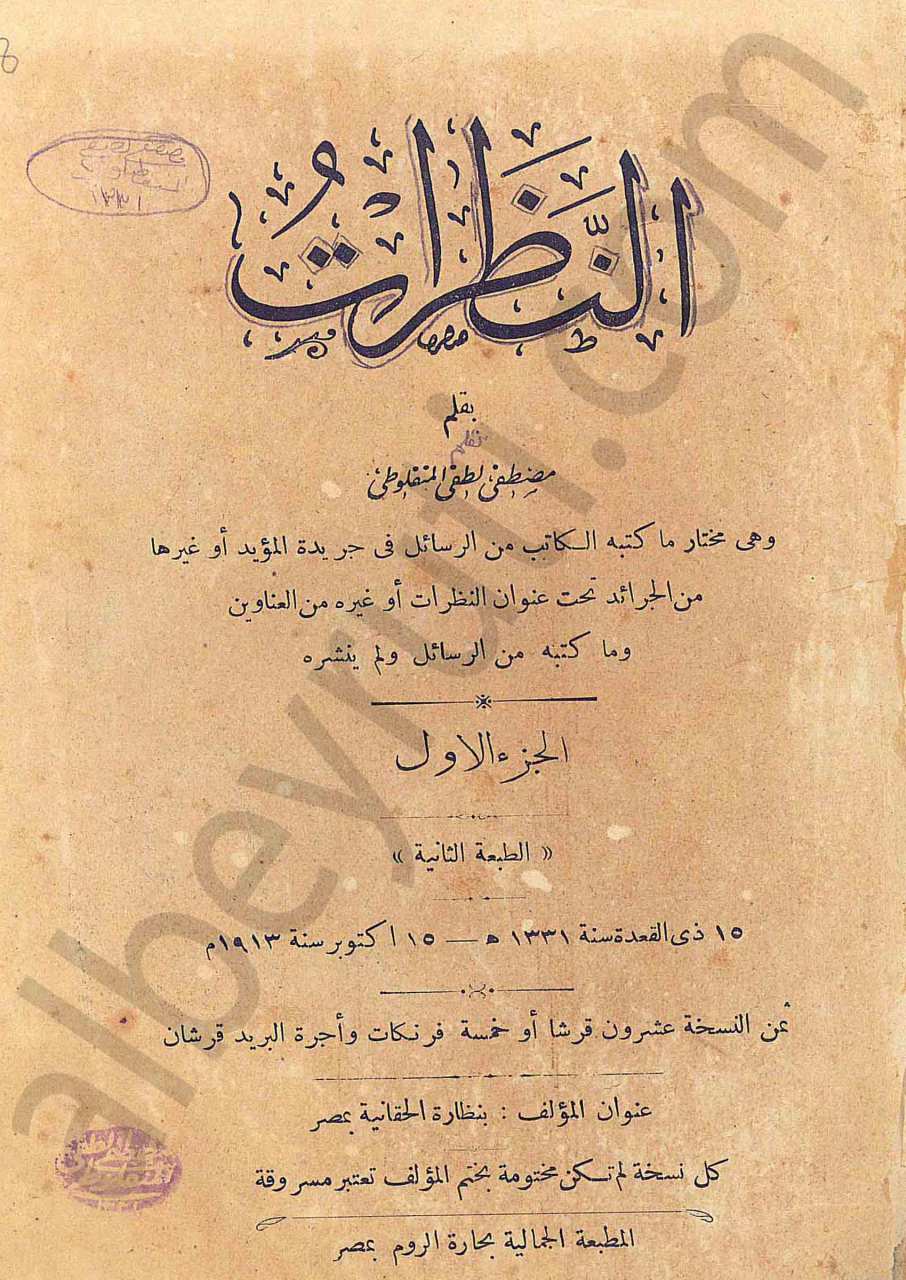 مصطفى لطفي
المنفلوطي
١٣٣١
النَّظَراتُ
بقلم
مصطفى لطفى المنفلوطى
وهى مختار ما كتبه الكاتب من الرسائل فى جريدة المؤيد أو غيرها
من الجرائد تحت عنوان النظرات أو غيره من العناوين
وما كتبه من الرسائل ولم ينشره
الجزء الاول
« الطبعة الثانية »
١٥ ذى القعدة سنة ١٣٣١ ه — ١٥ اكتوبر سنة ١٩١٣م
ثمن النسخة عشرون قرشا أو خمسة فرنكات وأجرة البريد قرشان
عنوان المؤلف : بنظارة الحقانية بمصر
كل نسخة لم تكن مختومة بختم المؤلف تعتبر مسروقة
المطبعة الجمالية بحارة الروم بمصر
albeyruti.com